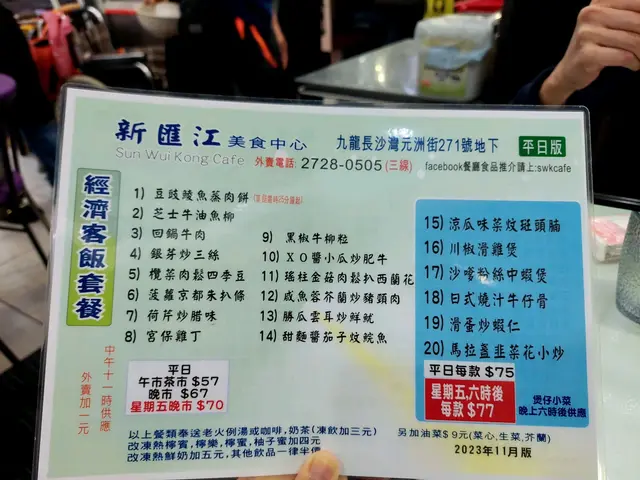 新匯江 美食中心
Sun Wui Kong Cafe
九龍長沙灣元洲街271號地下
平日版
外賣電話 2728-0505(三線)
facebook餐廳食品推介請上:swkcafe
經濟客飯套餐
1) 豆豉鯪魚蒸肉餅
2) 芝士牛油魚柳
3) 回鍋牛肉
4) 銀芽炒三絲
5) 欖菜肉鬆四季豆
6) 菠蘿京都朱扒條
7) 荷芹炒腊味
8) 宮保雞丁
9) 黑椒牛柳粒
10) XO醬小瓜炒肥牛
11) 瑤柱金菇肉鬆扒西蘭花
12) 咸魚蓉芥蘭炒豬頸肉
13) 勝瓜雲耳炒鮮魷
14) 甜麵醬茄子炆鯇魚
15) 涼瓜味菜炆斑頭腩
16) 川椒滑雞煲
17) 沙嗲粉絲中蝦煲
18) 日式燒汁牛仔骨
19) 滑蛋炒蝦仁
20) 馬拉盞韭菜花小炒
中午十一時供應
外賣加一元
平日
午市茶市 $57
晚市 $67
星期五晚市 $70
平日每款 $75
星期五,六時後
每款 $77
煲仔小菜
晚上六時後供應
以上餐類奉送老火例湯或咖啡,奶茶(凍飲加三元)
改凍熱檸賓,檸樂,檸蜜,柚子蜜加四元
改凍熱鮮奶加五元,其他飲品一律半價
另加油菜$9元(菜心,生菜,芥蘭)
2023年11月版